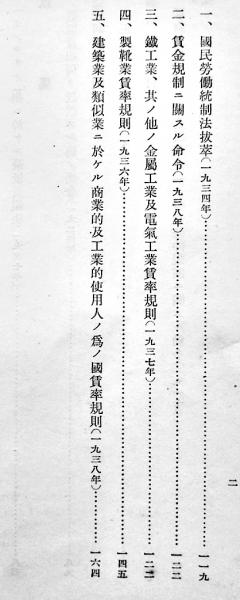 一、國民勞働統制法拔萃(一九三四年)……一一九
二、賃金規制ニ關スル命令(一九三八年)……一二二
三、鐵工業、其ノ他ノ金屬工業及電氣工業賃率規則(一九三七年)……一二三
四、製靴業賃率規則(一九三六年)……一四五
五、建築業及類似業ニ於ケル商業的及工業的使用人ノ爲ノ國賃率規則(一九三八年)……一六四
二